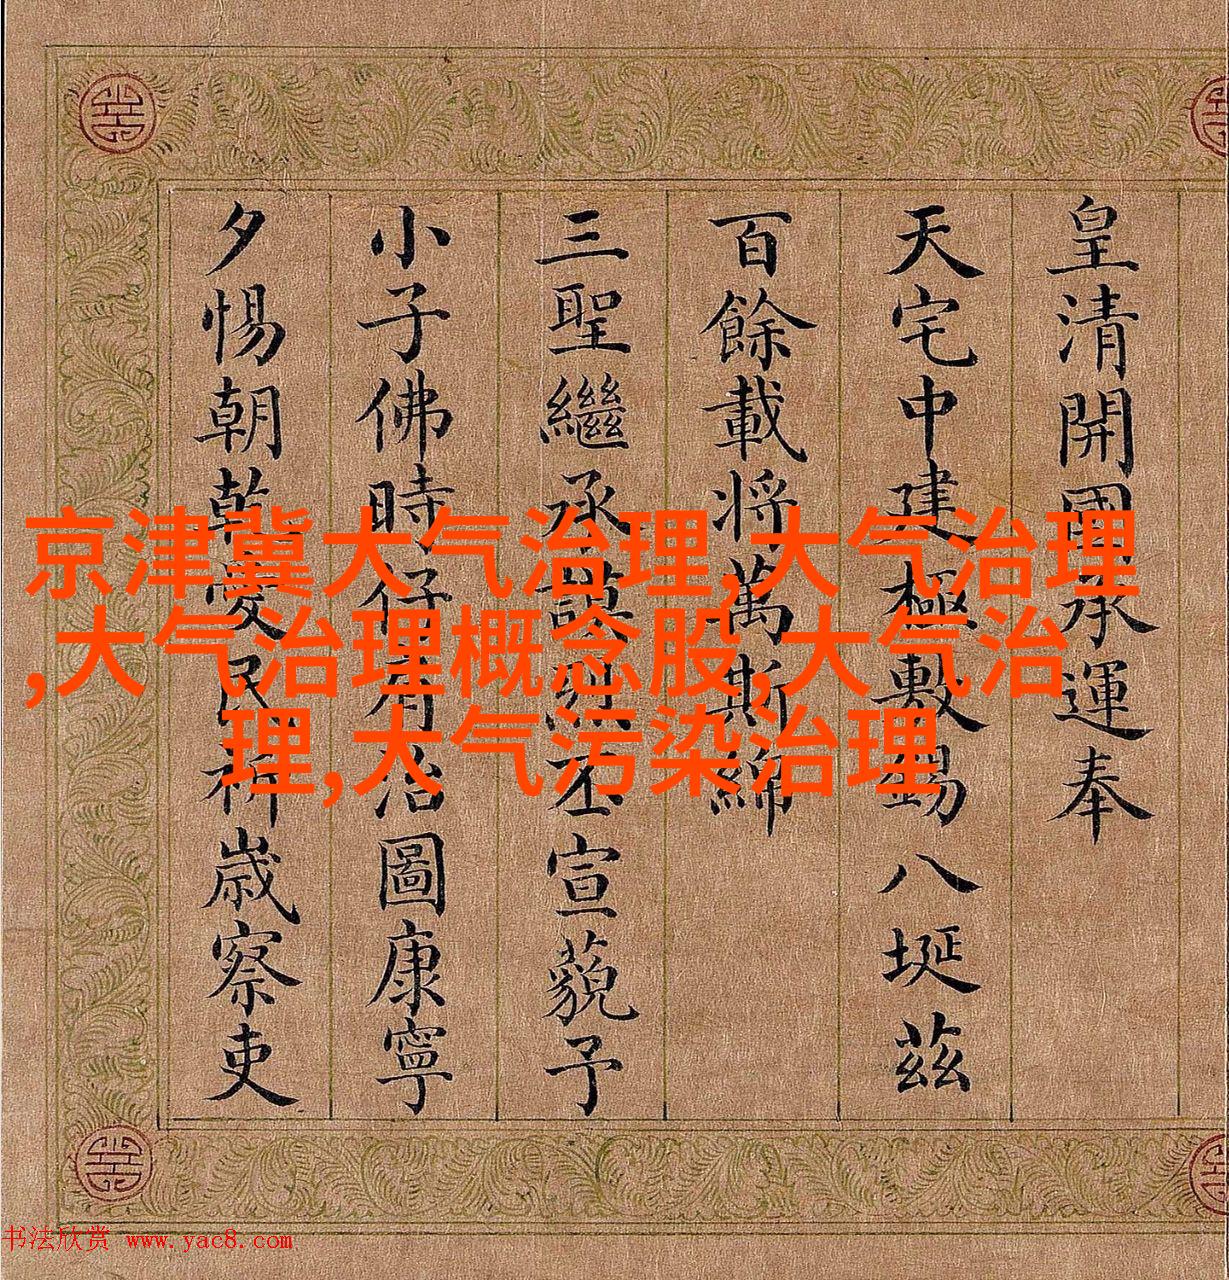 皇清開國承運奉
天宅中建極敷錫八埏茲
百餘載將萬斯綿
三聖繼承謨烈丕宣藐予
小子佛時仔肩治圖康寧
夕惕朝乾愛民祈歲察吏
京津冀大气治理,大气治理
,大气治理概念股,大气治
理,大气污染治理
书法欣赏 www.yac8.com